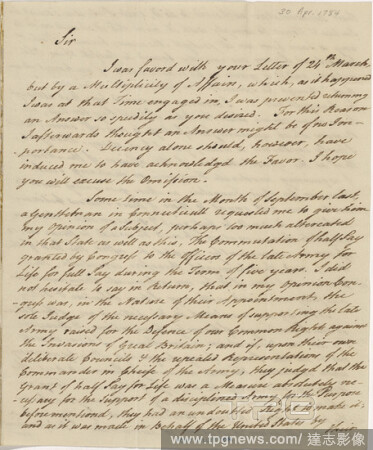 30 Apr. 1784
Sir
I was favord with your Letter of 24th March,
but by a Multiplicity of Affairs, which, as it happened
I was at that Time engaged in, I was prevented returning
an Answer so speedily as you desired. For this Reason
I afterwards thought an Answer might be of no Im-
portance. Decency alone should, however, have
induced me to have acknowledgd the Favor. I hope
you will excuse the Omission.
Some time in the Month of September last,
a Gentleman in Connecticutt requested me to give him
my Opinion of a Subject, perhaps too much altercated
in that State as well as this. The Commutation of half Pay
granted by Congress to the Officers of the late Army for
Life for full Pay during the Term of five years. I did
not hesitate to say in Return, that in my Opinion Con-
gress was, in the Nature of their Appointment, the
sole Judge of the necessary Means of supporting the late
Army raised for the Defence of our Common Right against
the Invasions of Great Britain; and if, upon their own
deliberate Councils & the repeated Representations of the
Commander in Chiefe of the Army, they judgd that the
Grant of half Pay for Life was a Measure absolutely ne-
cessary for the Support of a disciplined Army for the Purpose
before mentiond, they had an undoubted Right to make it;
and as it was made in Behalf of the United States by
their
www.tpgnews.com / 達志影像
TPG